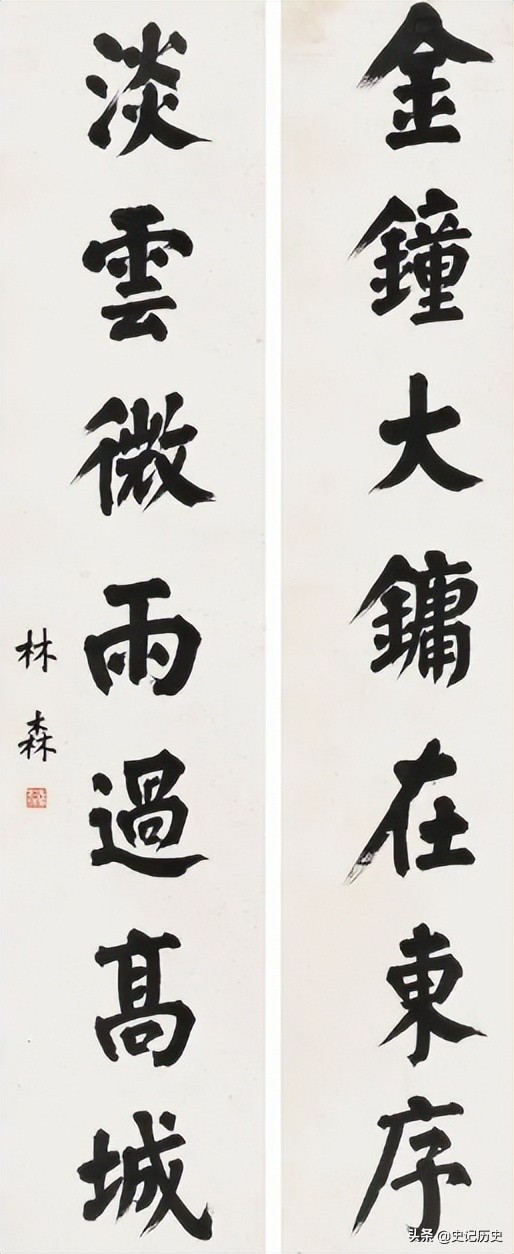 金鐘大鏞在東序
淡雲微雨過高城
林森
头条 @史记历史